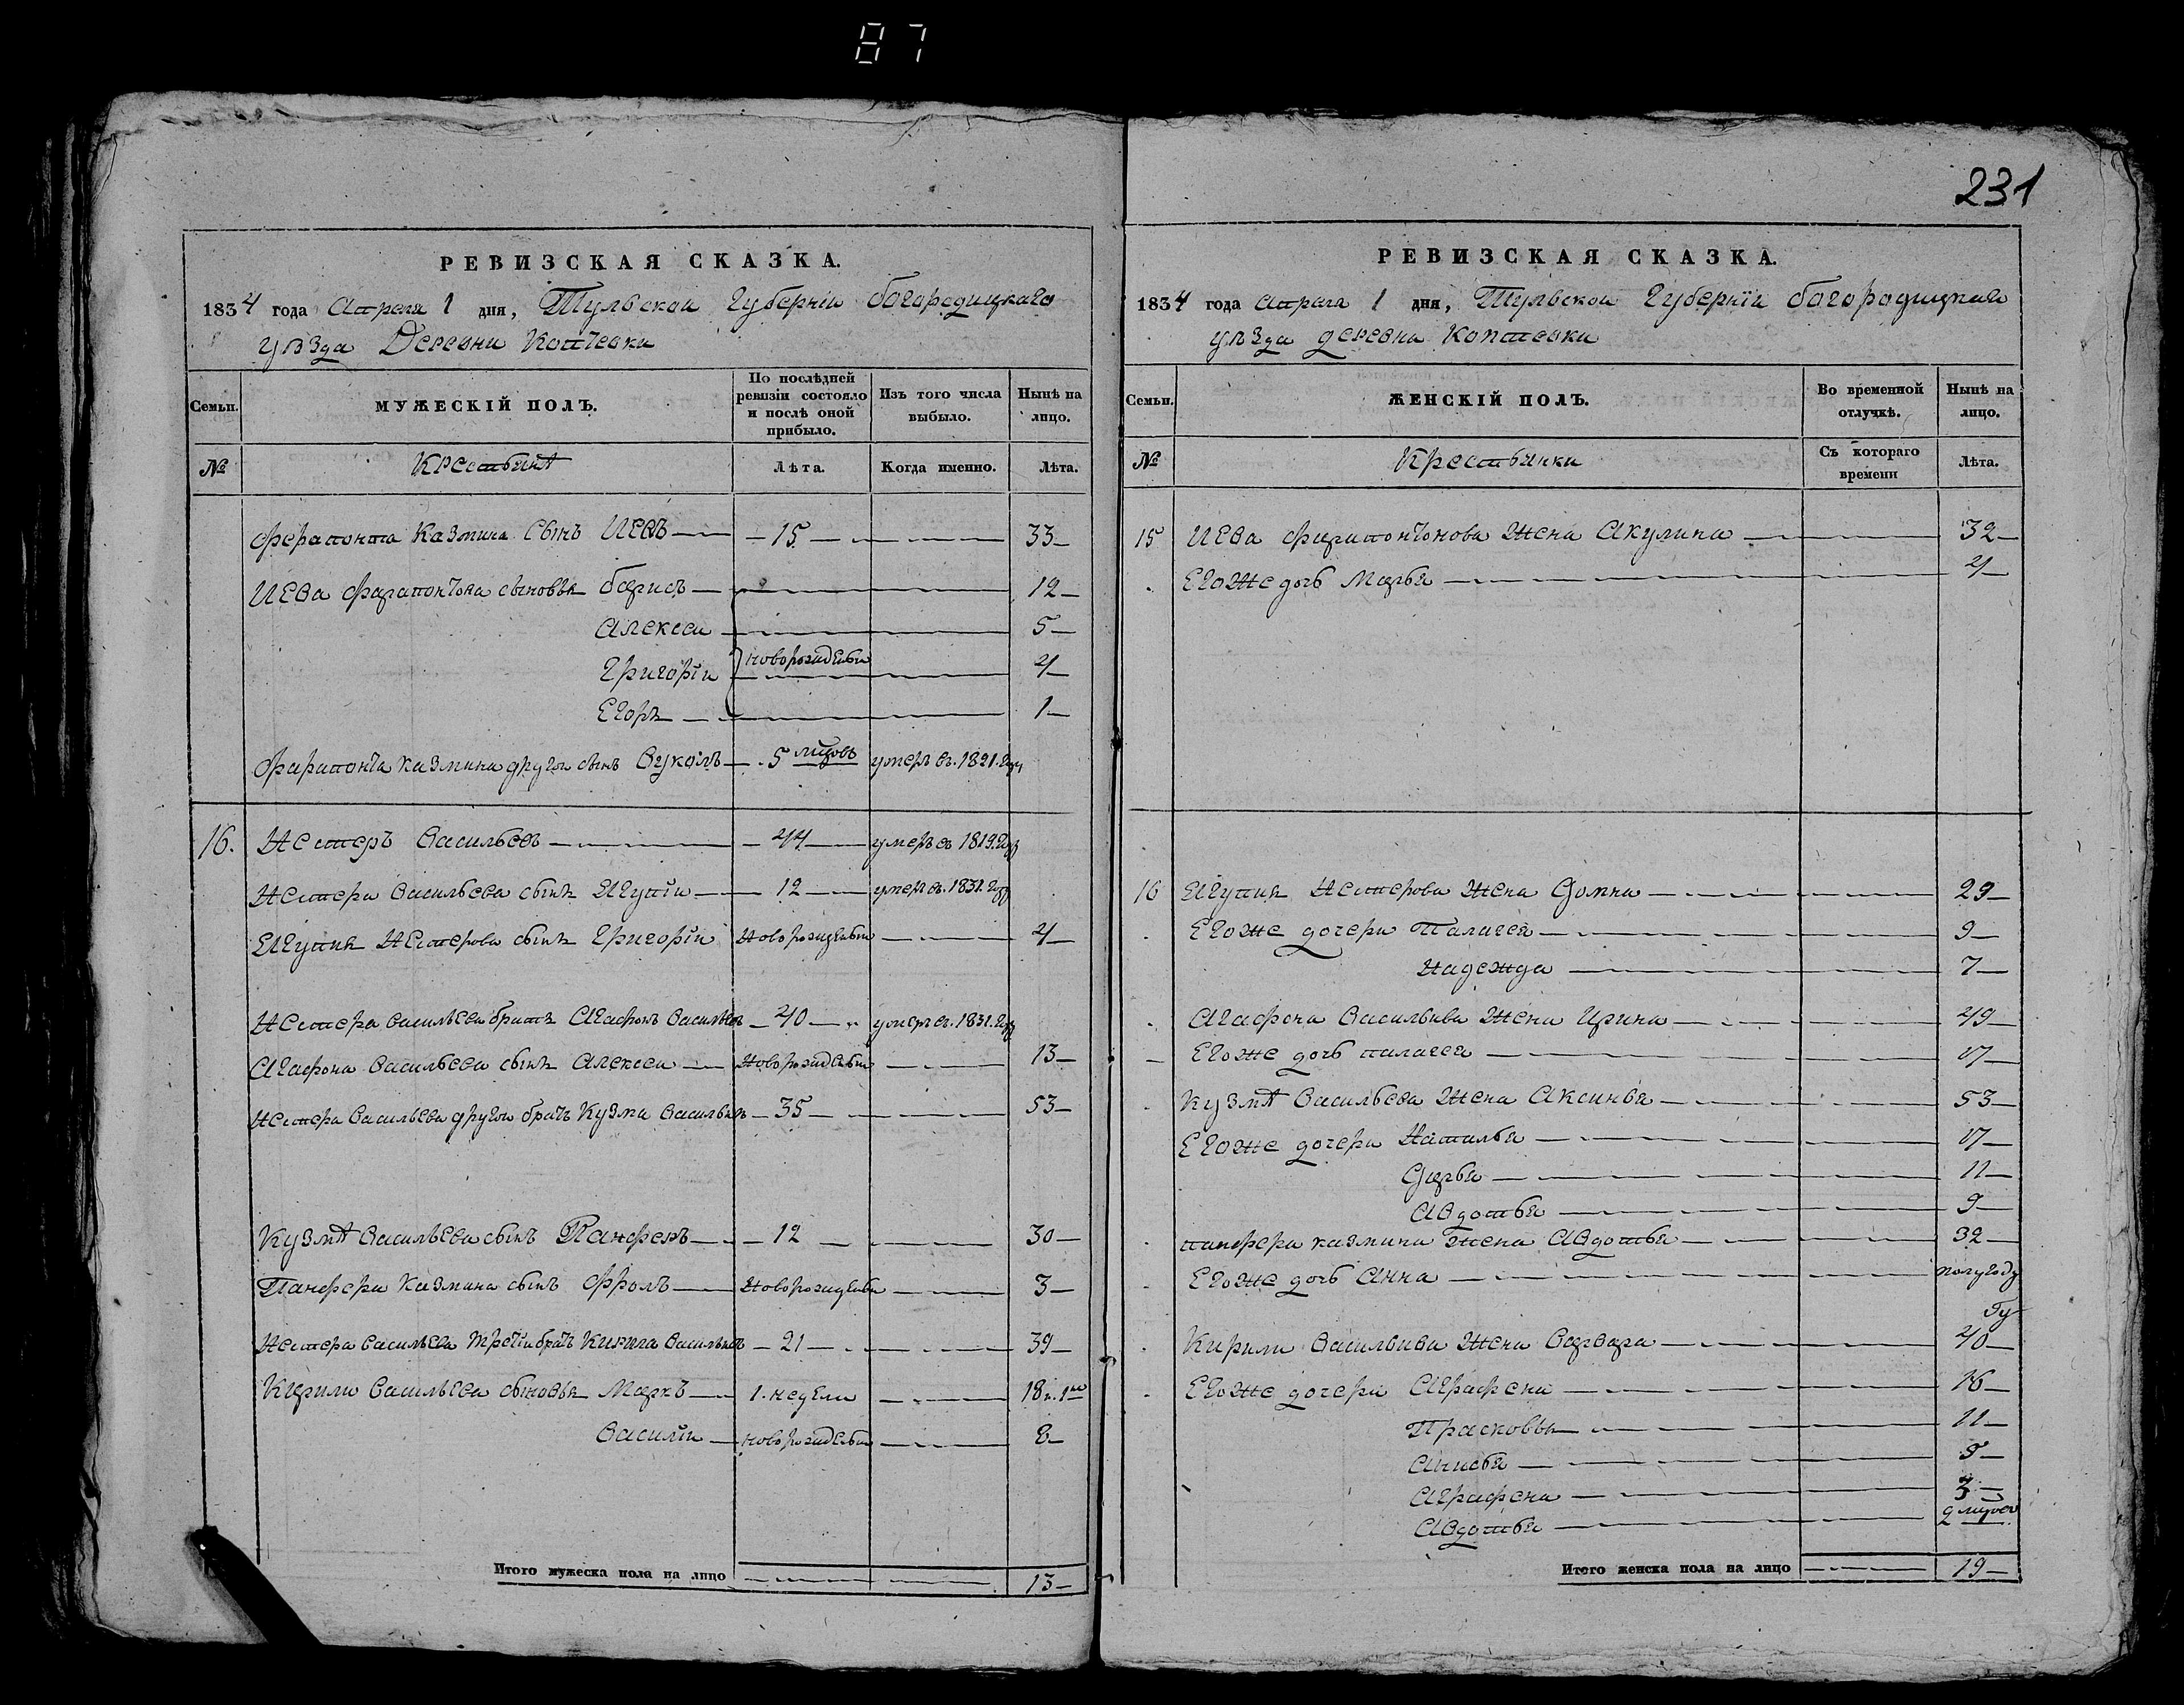 87
231
РЕВИЗСКАЯ СКАЗКА.
1834 года Апреля 1 дня, Тульской Губернiи богородицкаго
уѣзда Деревни Коптевки
Семьи. МУЖЕСКІЙ ПОЛЪ. По послѣдней ревизіи состояло и послѣ оной прибыло. Изъ того числа выбыло. Нынѣ на лицо.
№ Крестьянѣ Лѣта. Когда именно. Лѣта.
Ферапонта Казмина Сынъ Иевъ 15 33
Иева Фарапонтова сыновья барисъ 12
Алексеи 5
Григорiи новорожденыи 4
Егоръ 1
Фарапонта казмина другои сынъ Вуколъ 5 мцовъ умеръ въ. 1821. году
16. Нестеръ Васильевъ 44 умеръ въ 1819. году
Нестера Васильева сынъ Евгупiи 12 умеръ въ. 1831. году
Нестерова сынъ Григорiи Новорожденыи 4
Нестера васильева братъ Агафонъ Васильевъ 40 умеръ въ. 1831. году
Агафона Васильева сынъ Алексеи Новорожденыи 13
Нестера Васильева другои братъ Кузма Васильевъ 35 53
Кузмѣ Васильева сынъ Панферъ 12 30
Панфера Казмина сынъ Фролъ Новорожденыи 3
Нестера васильева третiи братъ Кирила Васильевъ 21 39
Кирилы Васильева сыновья Маркъ 1. недели 18
Василiи новорожденыи 8
Итого мужеска пола на лицо 13
РЕВИЗСКАЯ СКАЗКА.
1834 года апреля 1 дня, Тульской Губернiи богородицкаго
уѣзда деревни Коптевки
Семьи. ЖЕНСКІЙ ПОЛЪ. Во временной отлучкѣ. Нынѣ на лицо.
№ Крестьянки Съ котораго времени Лѣта.
15 Иева Фарапонтонова Жена Акулина 32
Егоже дочь Марья 4
16 Нестерова Жена Домна 29
Егоже дочери Палагея 9
Надежда 7
Агафона Васильива Жена Ирина 49
Егоже дочь палагея 17
Кузмѣ Васильева Жена Аксинья 53
Егоже дочери Наталья 17
Дарья 11
Авдотья 9
панфера казмина Жена Авдотья 32
Егоже дочь Анна полугоду
Кирилы Васильива Жена Варвара 40
Егоже дочери Аграфена 16
Прасковья 11
Анисья 5
Аграфена 3
Авдотья
Итого женска пола на лицо 19